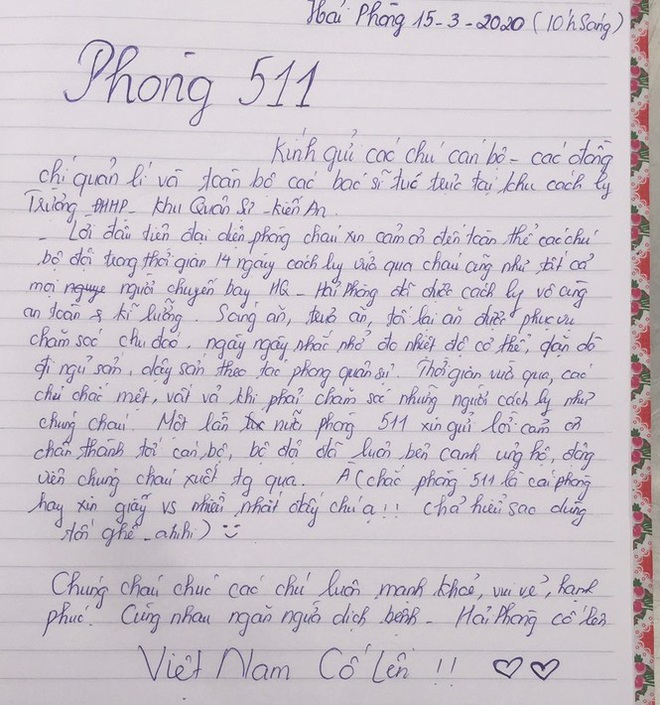 Hải Phòng 15-3-2020 (10h sáng)
Phòng 511
Kính gửi các chú cán bộ - các đồng
chí quản lí và toàn bộ các bác sĩ túc trực tại khu cách ly
Trường ĐHHP - Khu Quân Sự - Kiến An.
- Lời đầu tiên đại diện phòng cháu xin cảm ơn đến toàn thể các chú
bộ đội trong thời gian 14 ngày cách ly vừa qua cháu cũng như tất cả
mọi người chuyến bay HQ - Hải Phòng đã được cách ly vô cùng
an toàn & kĩ lưỡng. Sáng ăn, trưa ăn, tối lại ăn được phục vụ
chăm sóc chu đáo, ngày ngày nhắc nhở đo nhiệt độ cơ thể, dặn dò
đi ngủ sớm, dậy sớm theo tác phong quân sự. Thời gian vừa qua, các
chú chắc mệt, vất vả khi phải chăm sóc những người cách ly như
chúng cháu. Một lần nữa phòng 511 xin gửi lời cảm ơn
chân thành tới cán bộ, bộ đội đã luôn bên cạnh ủng hộ, động
viên chúng cháu suốt tg qua. À (chắc phòng 511 là cái phòng
hay xin giấy vs nhiều nhất đấy chú ạ!! Chả hiểu sao dùng
tốn ghê - ahihi)
Chúng cháu chúc các chú luôn mạnh khoẻ, vui vẻ, hạnh
phúc. Cùng nhau ngăn ngừa dịch bệnh - Hải Phòng cố lên
Việt Nam Cố Lên !! ♡♡